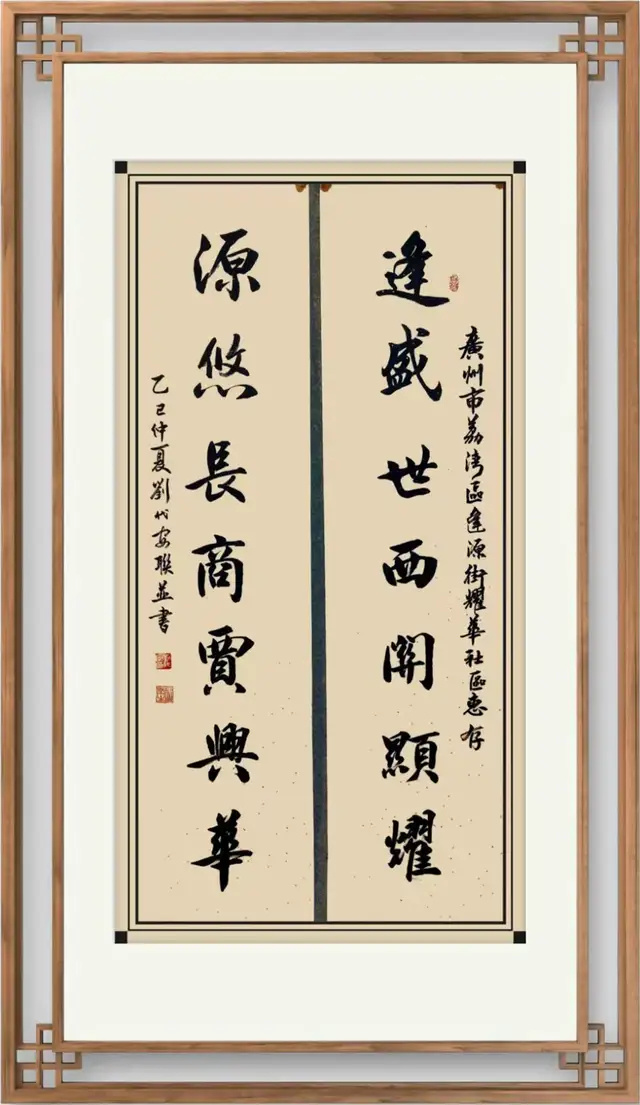 廣州市荔湾區逢源街耀華社區惠存
逢盛世西関顯耀
源悠長商賈興華
乙巳仲夏劉代安聯並書